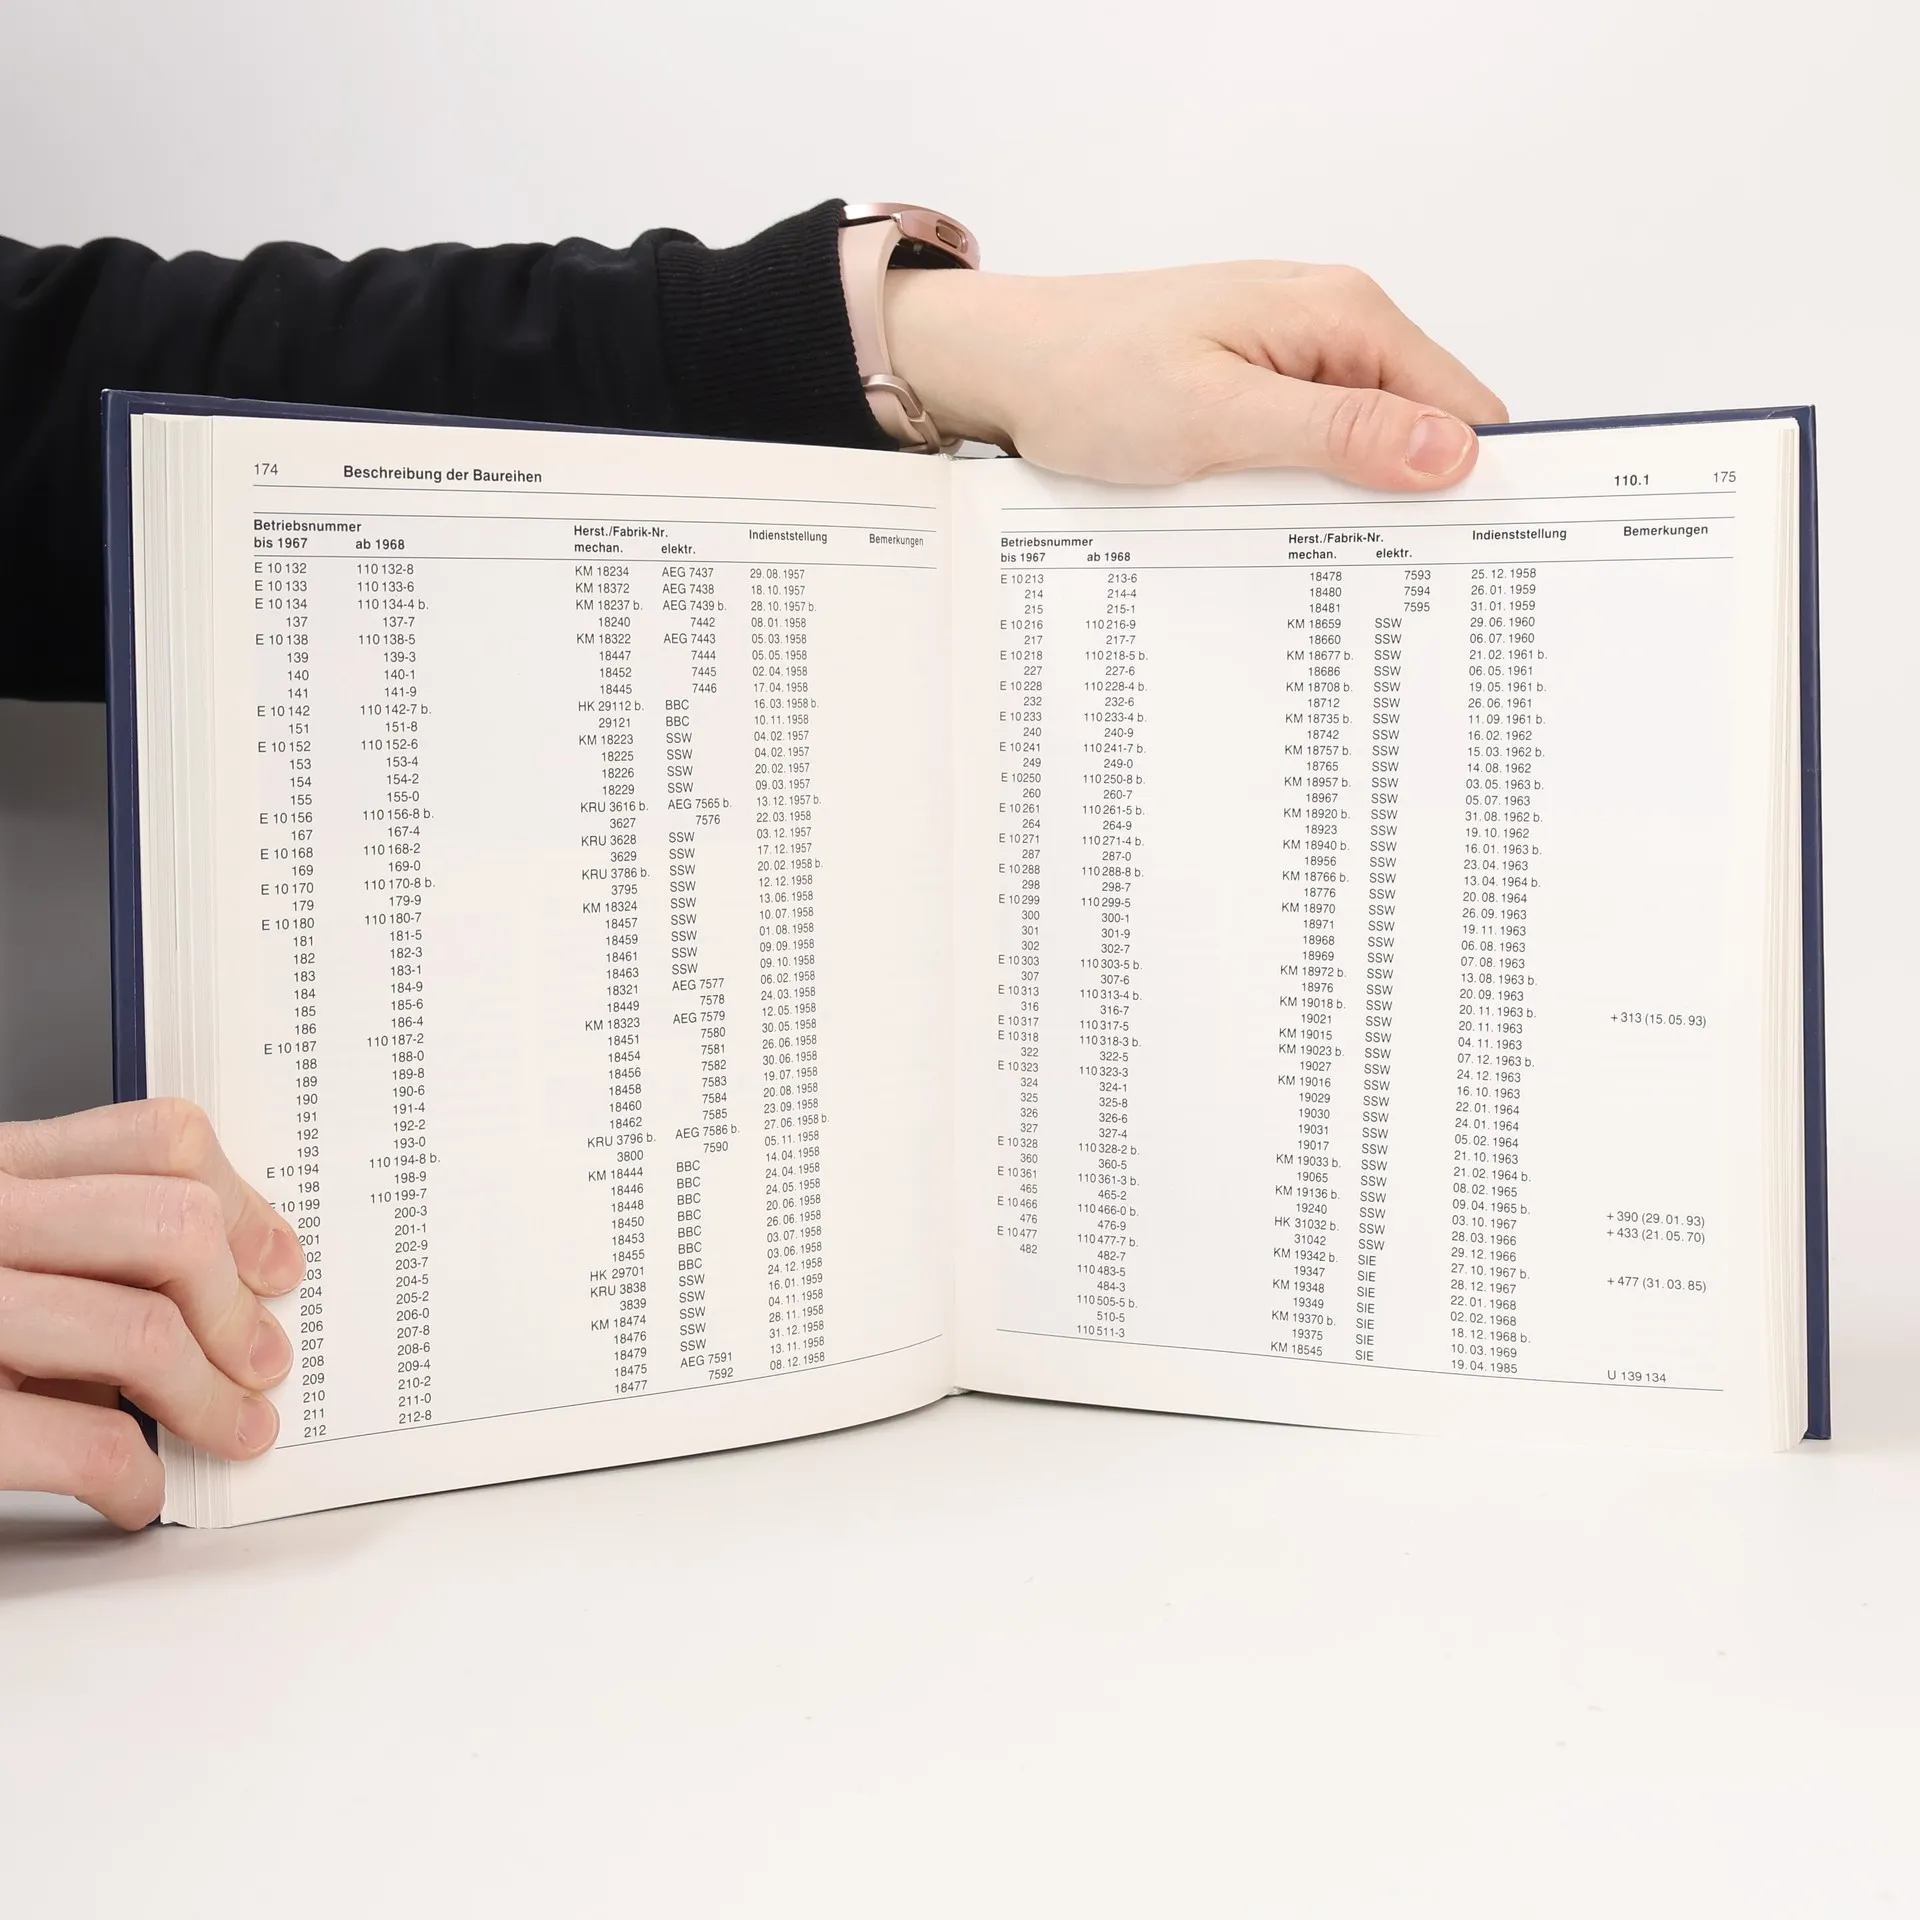 174 Beschreibung der Baureihen
Betriebsnummer Herst./Fabrik-Nr. Indienststellung Bemerkungen
bis 1967 ab 1968 mechan. elektr.
E 10 132 110 132-8 KM 18234 AEG 7437 29.08.1957
E 10 133 110 133-6 KM 18372 AEG 7438 18.10.1957
E 10 134 110 134-4 b. KM 18237 b. AEG 7439 b. 28.10.1957 b.
137 137-7 18240 7442 08.01.1958
E 10 138 110 138-5 KM 18322 AEG 7443 05.03.1958
139 139-3 18447 7444 05.05.1958
140 140-1 18452 7445 02.04.1958
141 141-9 18445 7446 17.04.1958
E 10 142 110 142-7 b. HK 29112 b. BBC 16.03.1958 b.
151 151-8 29121 BBC 10.11.1958
E 10 152 110 152-6 KM 18223 SSW 04.02.1957
153 153-4 18225 SSW 04.02.1957
154 154-2 18226 SSW 20.02.1957
155 155-0 18229 SSW 09.03.1957
E 10 156 110 156-8 b. KRU 3616 b. AEG 7565 b. 13.12.1957 b.
167 167-4 3627 7576 22.03.1958
E 10 168 110 168-2 KRU 3628 SSW 03.12.1957
169 169-0 3629 SSW 17.12.1957
E 10 170 110 170-8 b. KRU 3786 b. SSW 20.02.1958 b.
179 179-9 3795 SSW 12.12.1958
E 10 180 110 180-7 KM 18324 SSW 13.06.1958
181 181-5 18457 SSW 10.07.1958
182 182-3 18459 SSW 01.08.1958
183 183-1 18461 SSW 09.09.1958
184 184-9 18463 SSW 09.10.1958
185 185-6 18321 AEG 7577 06.02.1958
186 186-4 18449 7578 24.03.1958
E 10 187 110 187-2 KM 18323 AEG 7579 12.05.1958
188 188-0 18451 7580 30.05.1958
189 189-8 18454 7581 26.06.1958
190 190-6 18456 7582 30.06.1958
191 191-4 18458 7583 19.07.1958
192 192-2 18460 7584 20.08.1958
193 193-0 18462 7585 23.09.1958
E 10 194 110 194-8 b. KRU 3796 b. AEG 7586 b. 27.06.1958 b.
198 198-9 3800 7590 05.11.1958
E 10 199 110 199-7 KM 18444 BBC 14.04.1958
200 200-3 18446 BBC 24.04.1958
201 201-1 18448 BBC 24.05.1958
02 202-9 18450 BBC 20.06.1958
03 203-7 18453 BBC 26.06.1958
204 204-5 18455 BBC 03.07.1958
205 205-2 HK 29701 BBC 03.06.1958
206 206-0 KRU 3838 SSW 24.12.1958
207 207-8 3839 SSW 16.01.1959
208 208-6 KM 18474 SSW 04.11.1958
209 209-4 18476 SSW 28.11.1958
210 210-2 18479 SSW 31.12.1958
211 211-0 18475 AEG 7591 13.11.1958
212 212-8 18477 7592 08.12.1958
110.1 175
Betriebsnummer Herst./Fabrik-Nr. Indienststellung Bemerkungen
bis 1967 ab 1968 mechan. elektr.
E 10 213 213-6 18478 7593 25.12.1958
214 214-4 18480 7594 26.01.1959
215 215-1 18481 7595 31.01.1959
E 10 216 110 216-9 KM 18659 SSW 29.06.1960
217 217-7 18660 SSW 06.07.1960
E 10 218 110 218-5 b. KM 18677 b. SSW 21.02.1961 b.
227 227-6 18686 SSW 06.05.1961
E 10 228 110 228-4 b. KM 18708 b. SSW 19.05.1961 b.
232 232-6 18712 SSW 26.06.1961
E 10 233 110 233-4 b. KM 18735 b. SSW 11.09.1961 b.
240 240-9 18742 SSW 16.02.1962
E 10 241 110 241-7 b. KM 18757 b. SSW 15.03.1962 b.
249 249-0 18765 SSW 14.08.1962
E 10 250 110 250-8 b. KM 18957 b. SSW 03.05.1963 b.
260 260-7 18967 SSW 05.07.1963
E 10 261 110 261-5 b. KM 18920 b. SSW 31.08.1962 b.
264 264-9 18923 SSW 19.10.1962
E 10 271 110 271-4 b. KM 18940 b. SSW 16.01.1963 b.
287 287-0 18956 SSW 23.04.1963
E 10 288 110 288-8 b. KM 18766 b. SSW 13.04.1964 b.
298 298-7 18776 SSW 20.08.1964
E 10 299 110 299-5 KM 18970 SSW 26.09.1963
300 300-1 18971 SSW 19.11.1963
301 301-9 18968 SSW 06.08.1963
302 302-7 18969 SSW 07.08.1963
E 10 303 110 303-5 b. KM 18972 b. SSW 13.08.1963 b.
307 307-6 18976 SSW 20.09.1963
E 10 313 110 313-4 b. KM 19018 b. SSW 20.11.1963 b. + 313 (15.05.93)
316 316-7 19021 SSW 20.11.1963
E 10 317 110 317-5 KM 19015 SSW 04.11.1963
E 10 318 110 318-3 b. KM 19023 b. SSW 07.12.1963 b.
322 322-5 19027 SSW 24.12.1963
E 10 323 110 323-3 KM 19016 SSW 16.10.1963
324 324-1 19029 SSW 22.01.1964
325 325-8 19030 SSW 24.01.1964
326 326-6 19031 SSW 05.02.1964
327 327-4 19017 SSW 21.10.1963
E 10 328 110 328-2 b. KM 19033 b. SSW 21.02.1964 b.
360 360-5 19065 SSW 08.02.1965
E 10 361 110 361-3 b. KM 19136 b. SSW 09.04.1965 b. + 390 (29.01.93)
465 465-2 19240 SSW 03.10.1967 + 433 (21.05.70)
E 10 466 110 466-0 b. HK 31032 b. SSW 28.03.1966
476 476-9 31042 SSW 29.12.1966
E 10 477 110 477-7 b. KM 19342 b. SIE 27.10.1967 b. + 477 (31.03.85)
482 482-7 19347 SIE 28.12.1967
110 483-5 KM 19348 SIE 22.01.1968
484-3 19349 SIE 02.02.1968
110 505-5 b. KM 19370 b. SIE 18.12.1968 b.
510-5 19375 SIE 10.03.1969
110 511-3 KM 18545 SIE 19.04.1985 U 139 134